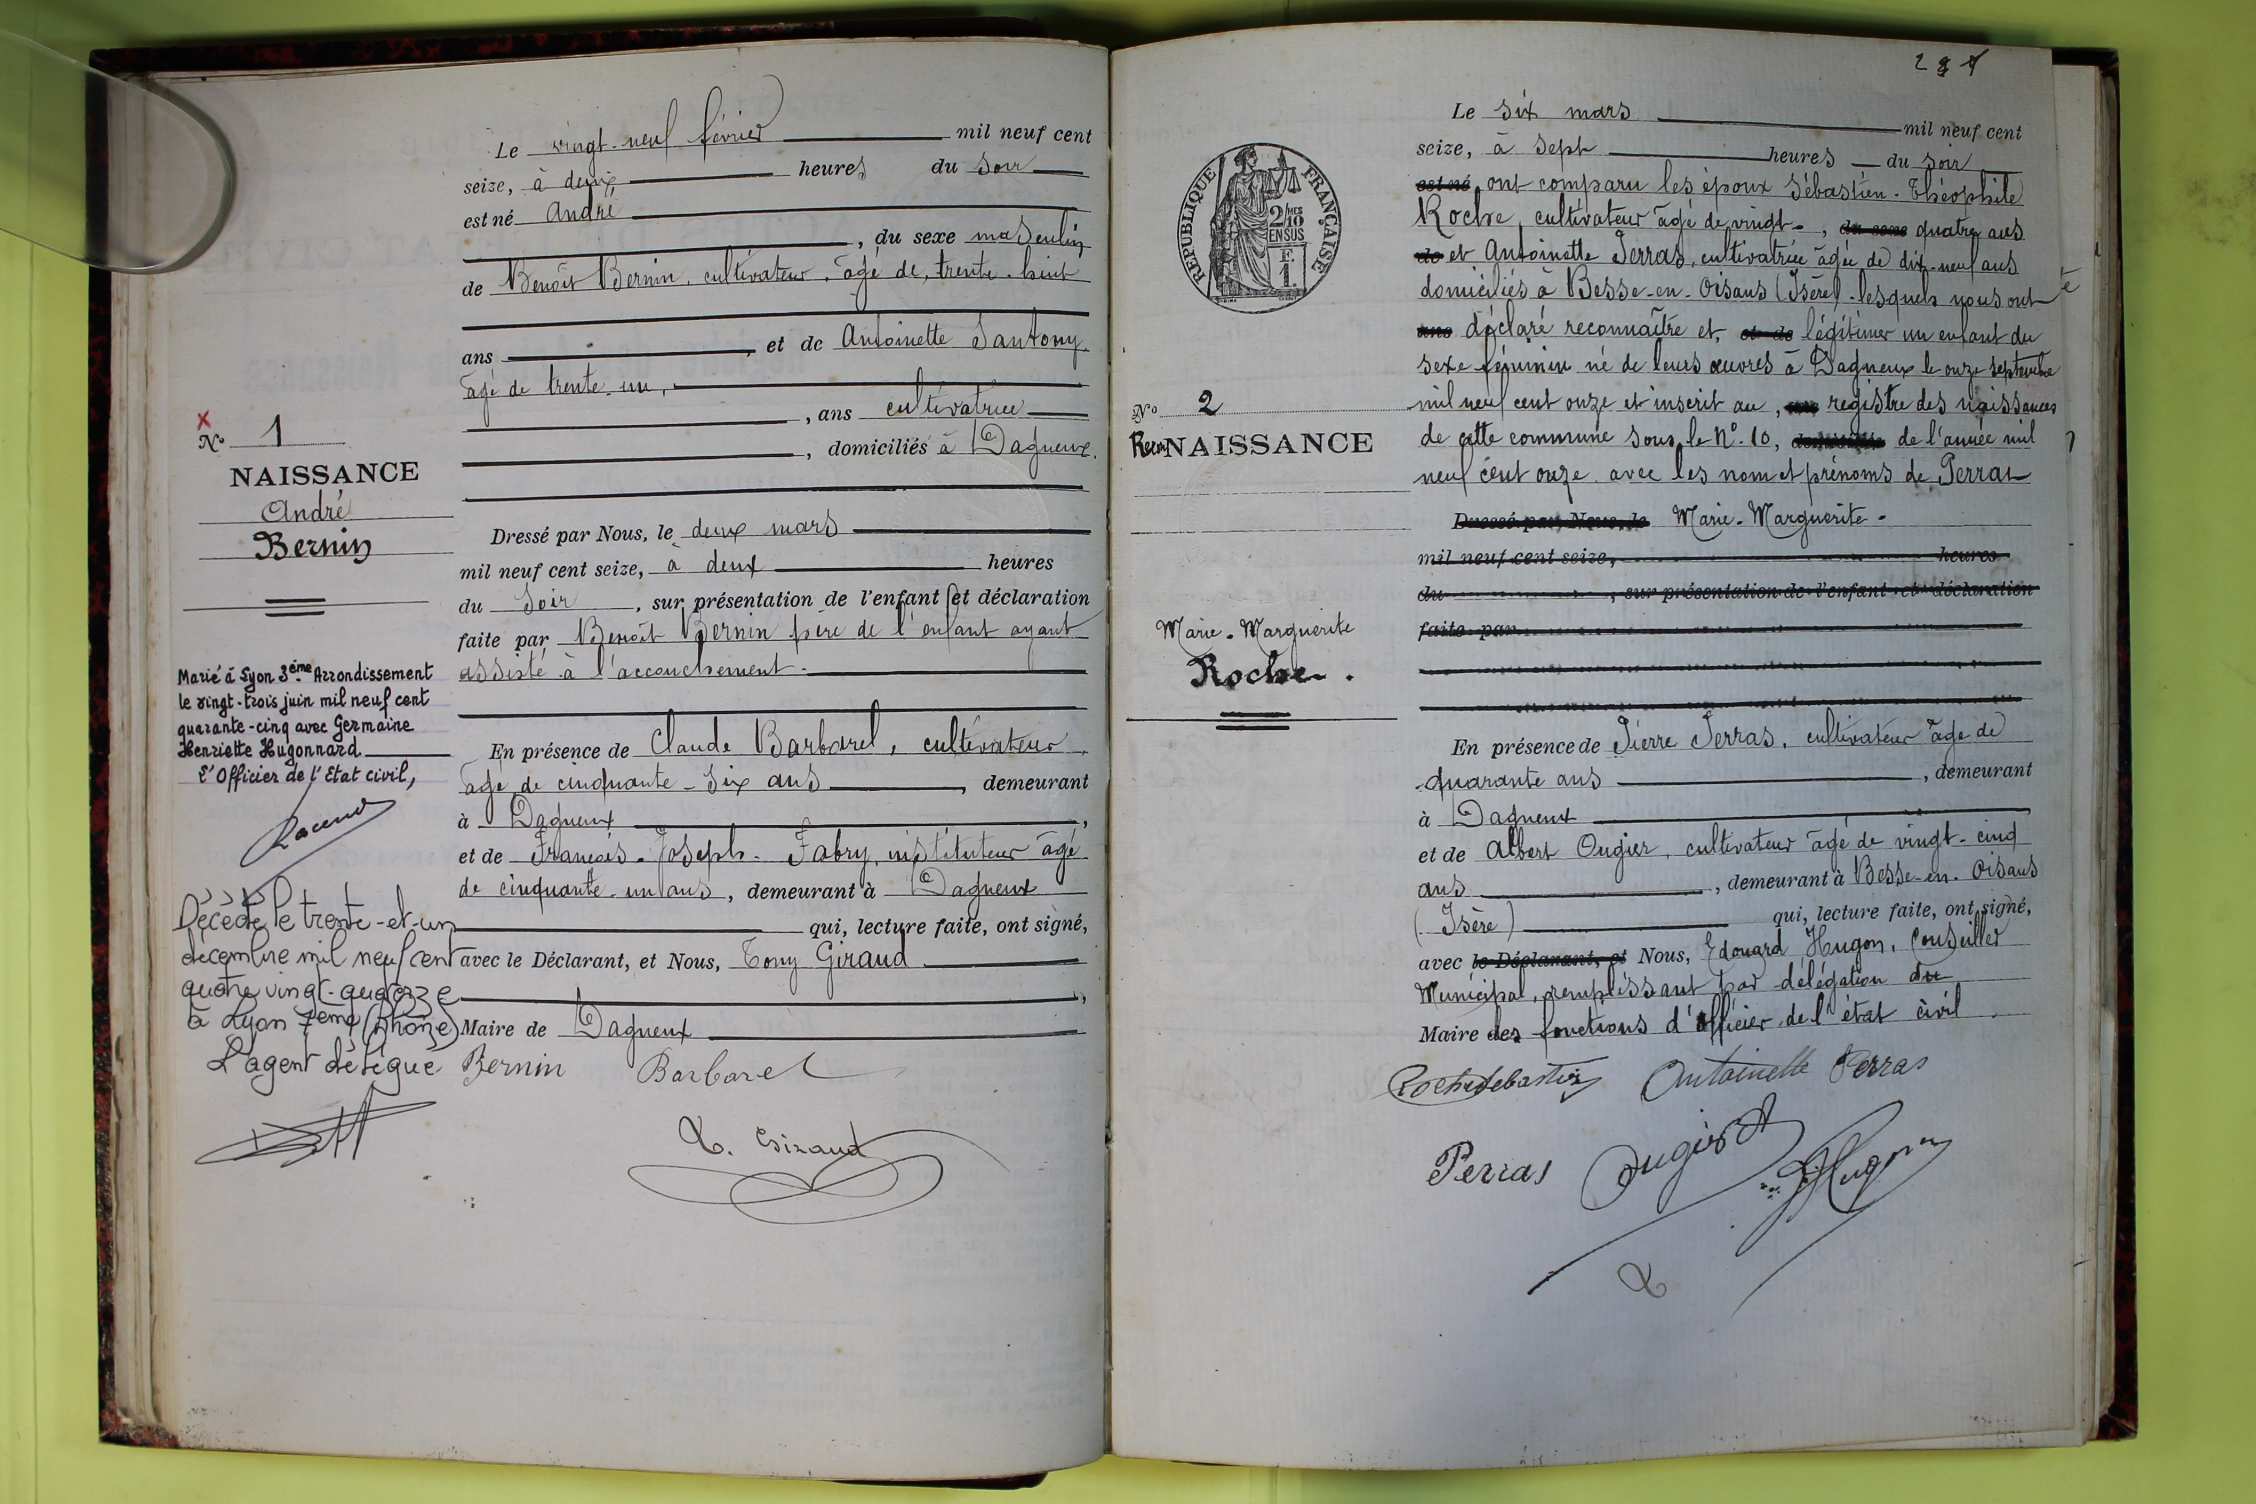 Le vingt-neuf février mil neuf cent
seize, à deux heures du soir
est né André
, du sexe masculin
de Benoît Bernin, cultivateur, âgé de, trente-huit
ans , et de Antoinette Santony
âgé de trente-un,
, ans cultivatrice
, domiciliés à Dagneux.
N° 1
NAISSANCE
André
Bernin
Dressé par Nous, le deux mars
mil neuf cent seize, à deux heures
du soir , sur présentation de l'enfant et déclaration
faite par Benoît Bernin père de l'enfant ayant
assisté à l'accouchement.
Marié à Lyon 3ème Arrondissement
le vingt-trois juin mil neuf cent
quarante-cinq avec Germaine
Henriette Hugonnard
L'Officier de l'Etat civil,
En présence de Claude Barbarel, cultivateur
âgé de cinquante-six ans , demeurant
à Dagneux ,
et de François-Joseph-Fabry, instituteur âgé
de cinquante-un ans , demeurant à Dagneux
qui, lecture faite, ont signé,
avec le Déclarant, et Nous, Tony Giraud
,
Maire de Dagneux
Décédé le trente-et-un
décembre mil neuf cent
quatre vingt-quatorze
à Lyon 7eme (Rhône)
L'agent délégué
Bernin Barbarel
T. Giraud
Le six mars mil neuf cent
seize, à sept heures du soir
est né ont comparu les époux Sébastien-Théophile
Roche, cultivateur âgé de vingt- , du sexe quatre ans
de et Antoinette Perras, cultivatrice âgée de dix-neuf ans
domiciliés à Besse-en-Oisans (Isère) lesquels nous ont
ans déclaré reconnaître et, et de légitimer un enfant du
sexe féminin né de leurs œuvres à Dagneux le onze septembre
mil neuf cent onze et inscrit au , ans registre des naissances
de cette commune sous le N° 10, domiciliés de l'année mil
neuf cent onze avec les nom et prénoms de Perras
Dressé par Nous, le Marie-Marguerite-
mil neuf cent seize, heures
du , sur présentation de l'enfant et déclaration
faite par
REPUBLIQUE FRANÇAISE
2/10mes
EN SUS
F.
1.
N° 2
Recon NAISSANCE
Marie-Marguerite
Roche.
En présence de Pierre Perras, cultivateur âgé de
quarante ans , demeurant
à Dagneux
et de Albert Ougier, cultivateur âgé de vingt-cinq
ans , demeurant à Besse-en-Oisans
(Isère) qui, lecture faite, ont signé,
avec le Déclarant, et Nous, Edouard Hugon, Conseiller
Municipal, remplissant par délégation du
Maire les fonctions d'officier de l'état civil
Roche Sebastien Antoinette Perras
Perras Ougier A Hugon